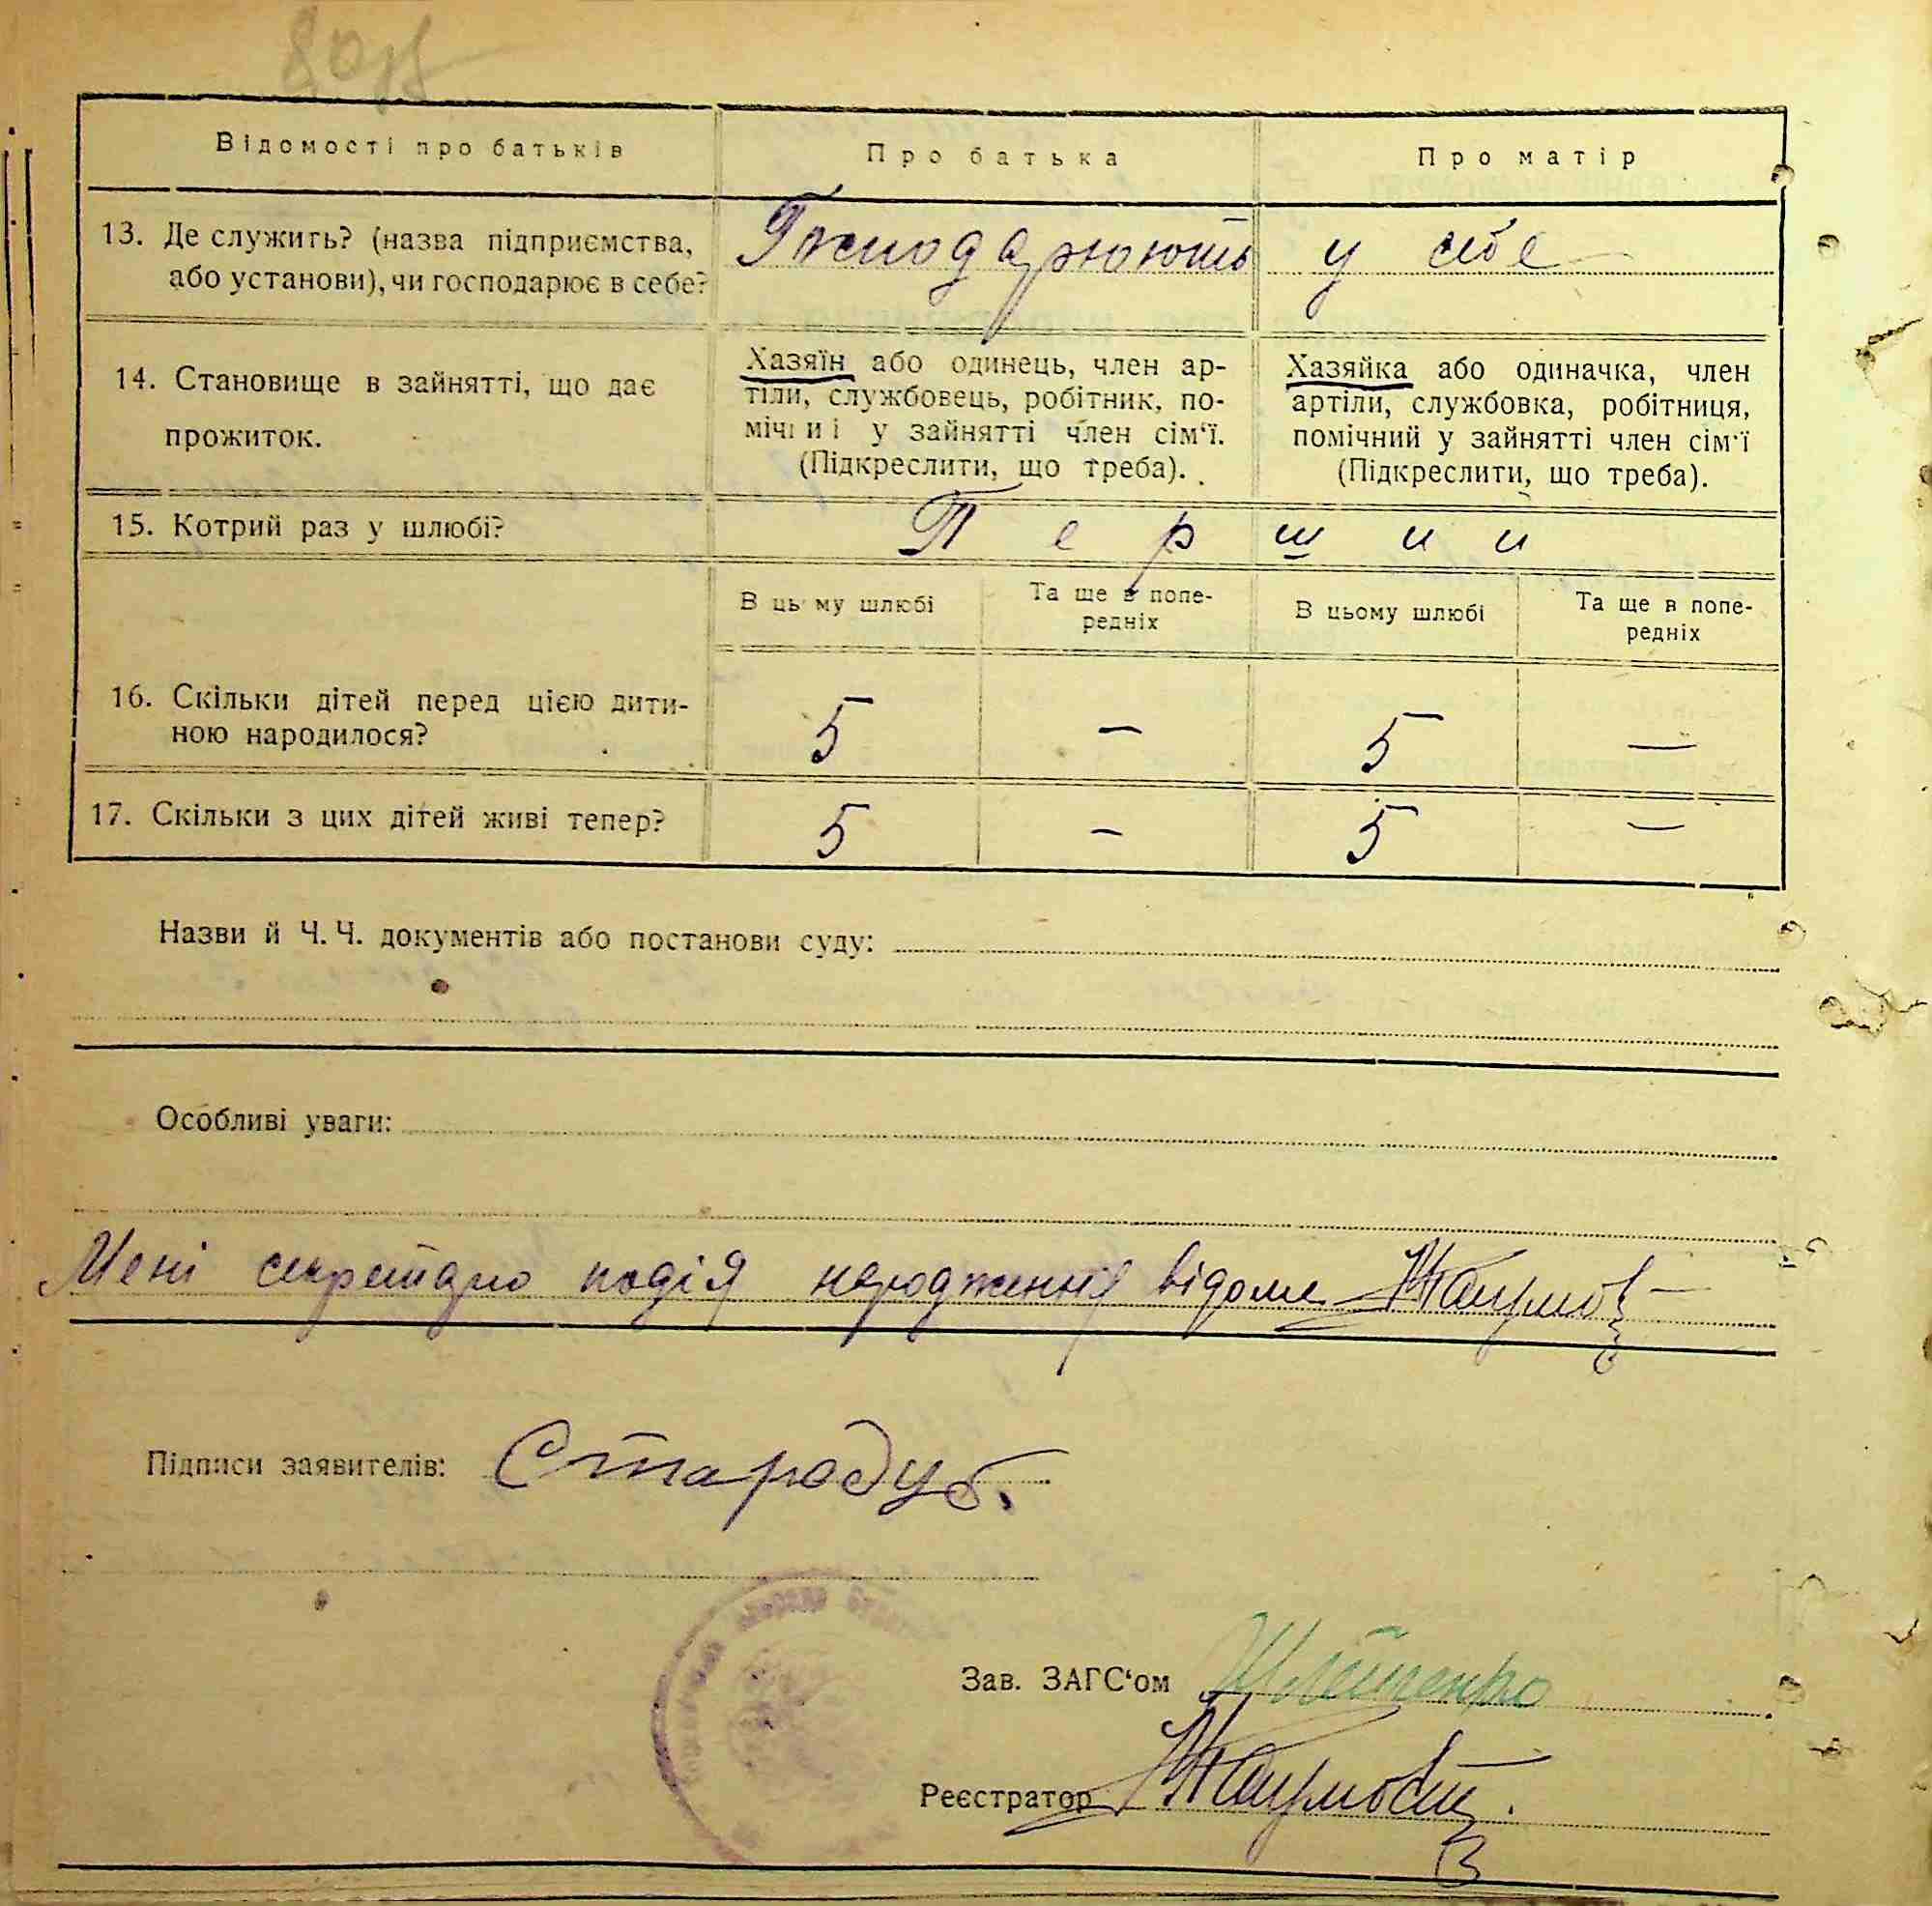 80
Відомості про батьків
Про батька
Про матір
13. Де служить? (назва підприємства,
або установи), чи господарює в себе?
Господарюють у себе
14. Становище в зайнятті, що дає
прожиток.
Хазяїн або одинець, член ар-
тіли, службовець, робітник, по-
мічні і у зайнятті член сім‘ї.
(Підкреслити, що треба).
Хазяйка або одиначка, член
артіли, службовка, робітниця,
помічний у зайнятті член сім‘ї
(Підкреслити, що треба).
15. Котрий раз у шлюбі?
Перший
В цьому шлюбі
Та ще в попе-
редніх
В цьому шлюбі
Та ще в попе-
редніх
16. Скільки дітей перед цією дити-
ною народилося?
5 – 5 —
17. Скільки з цих дітей живі тепер?
5 – 5 —
Назви й Ч. Ч. документів або постанови суду:
Особливі уваги:
Мені секретарю подія народження відома
Підписи заявителів: Стародуб.
Зав. ЗАГС‘ом
Реєстратор